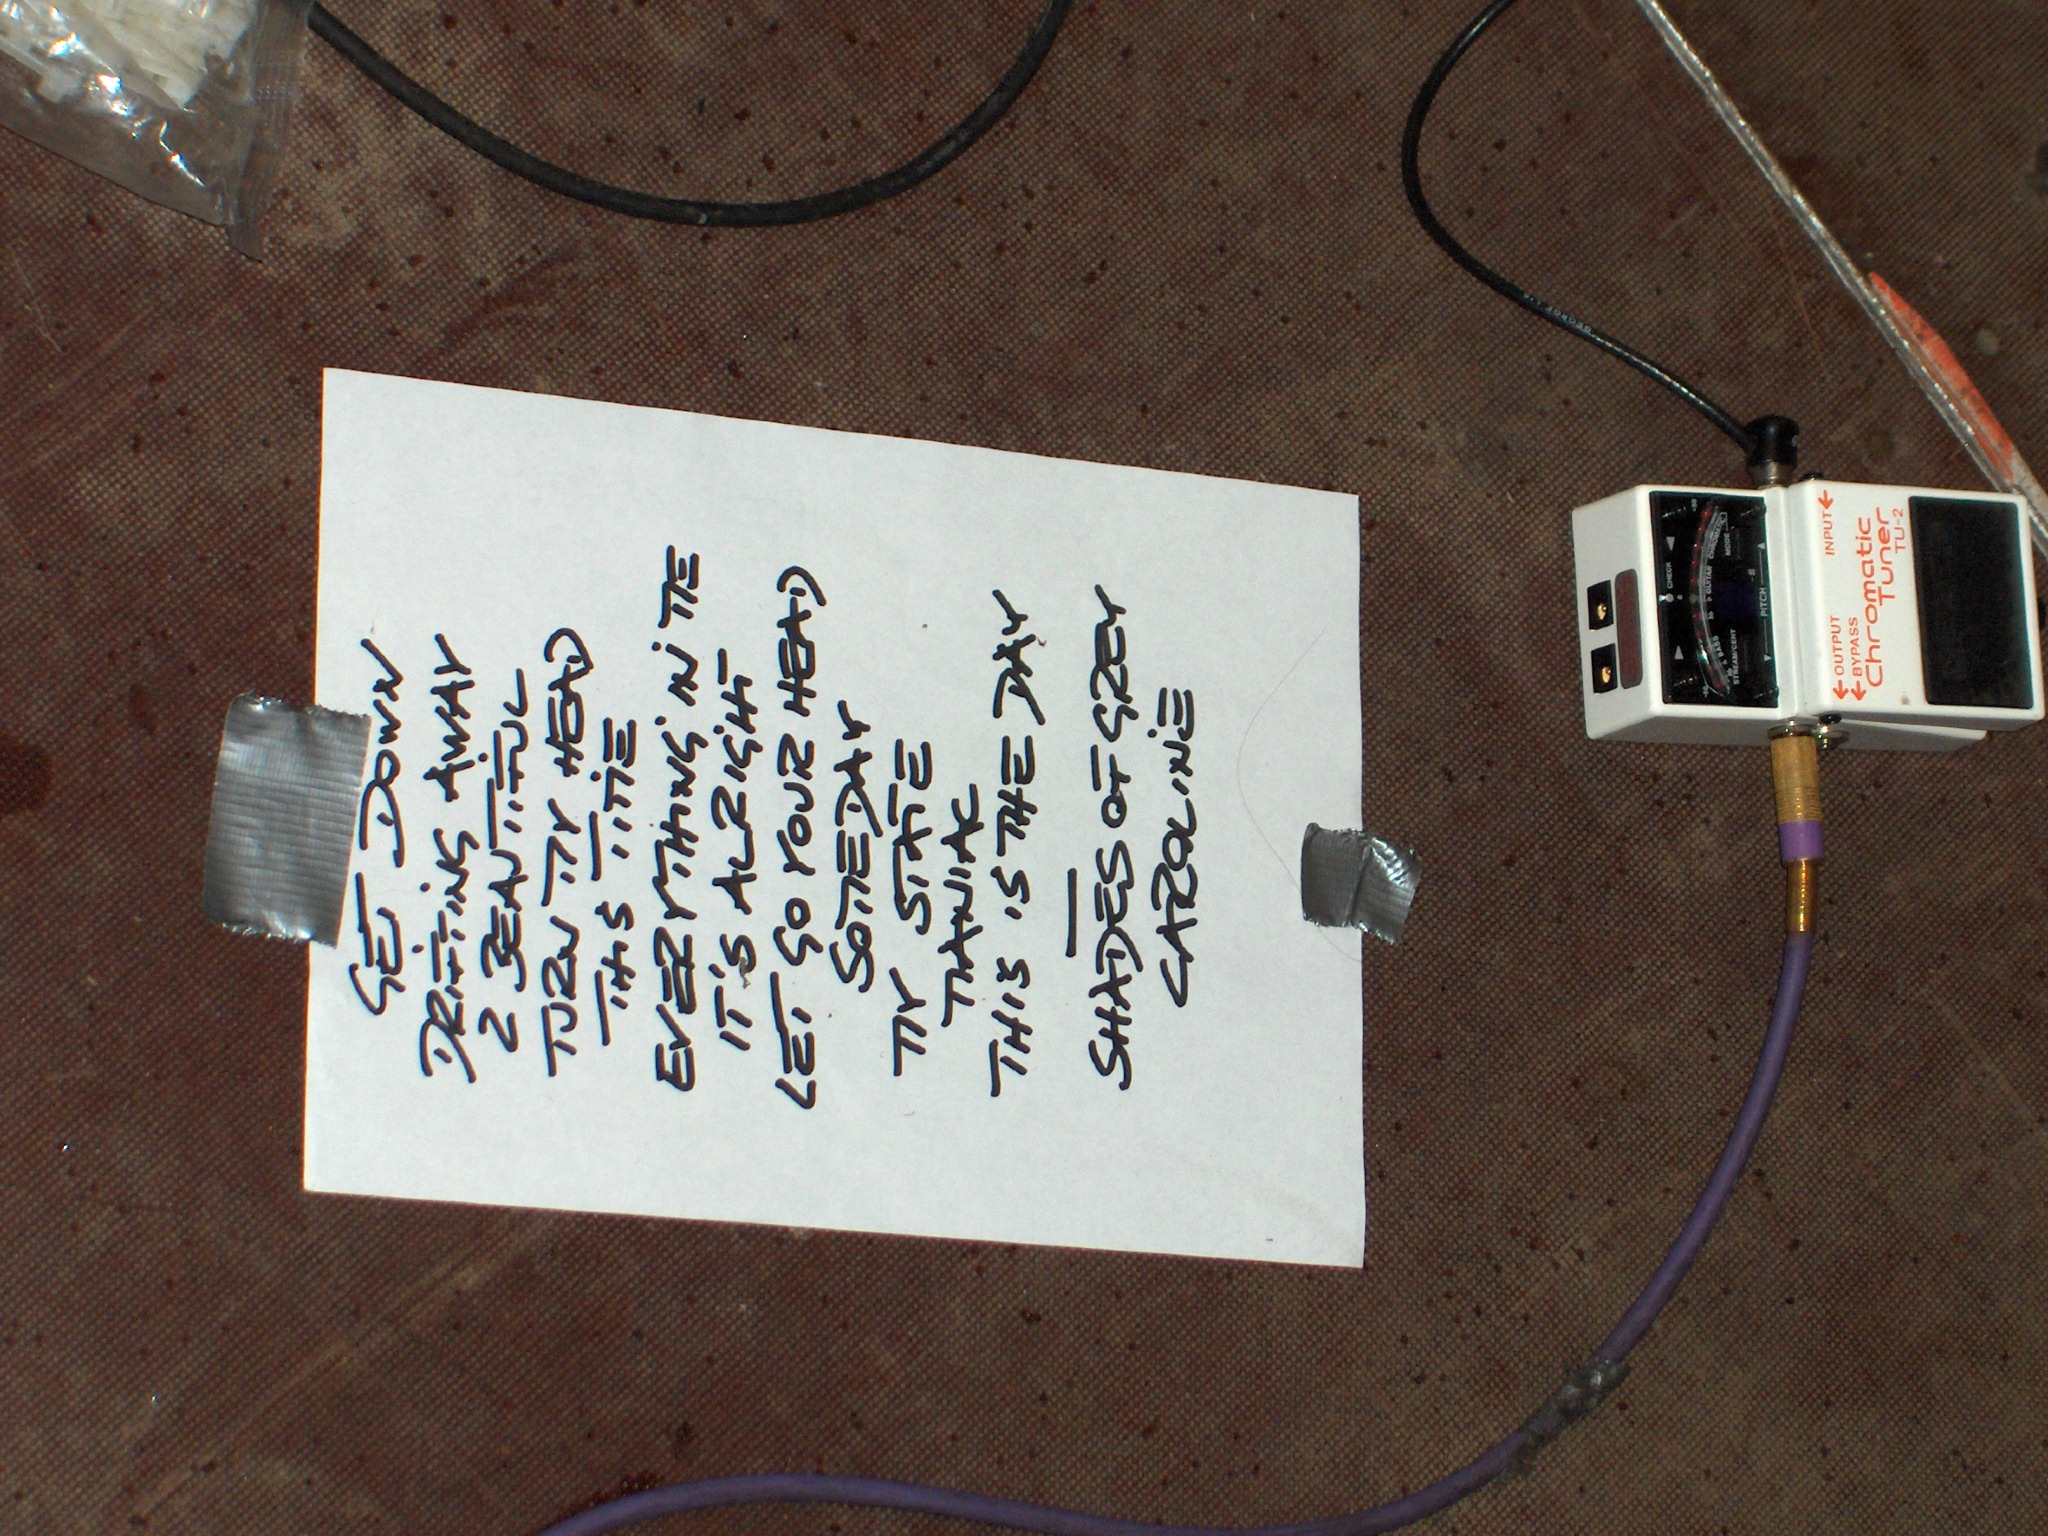 GET DOWN
DRIFTING AWAY
2 BEAUTIFUL
TURN MY HEAD
THIS TIME
EVERYTHING IN ME
IT'S ALRIGHT
LET GO YOUR HEAD
SOMEDAY
MY STATE
MANIAC
THIS IS THE DAY
SHADES OF GREY
CAROLINE
CHECK
GUITAR
CHROMATIC
BASS
STREAM/CENT
MODE
PITCH
OUTPUT
INPUT
BYPASS
Chromatic
Tuner
TU-2